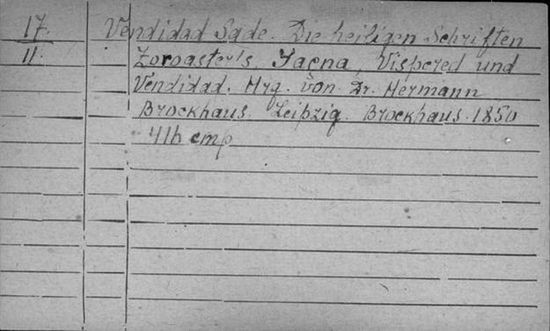 17. Vendidad Sade. Die heiligen Schriften
11. Zoroaster's, Yaçna, Vispered und
Vendidad. Hrg. von Dr. Hermann
Brockhaus. Leipzig. Brockhaus. 1850
416 cmp